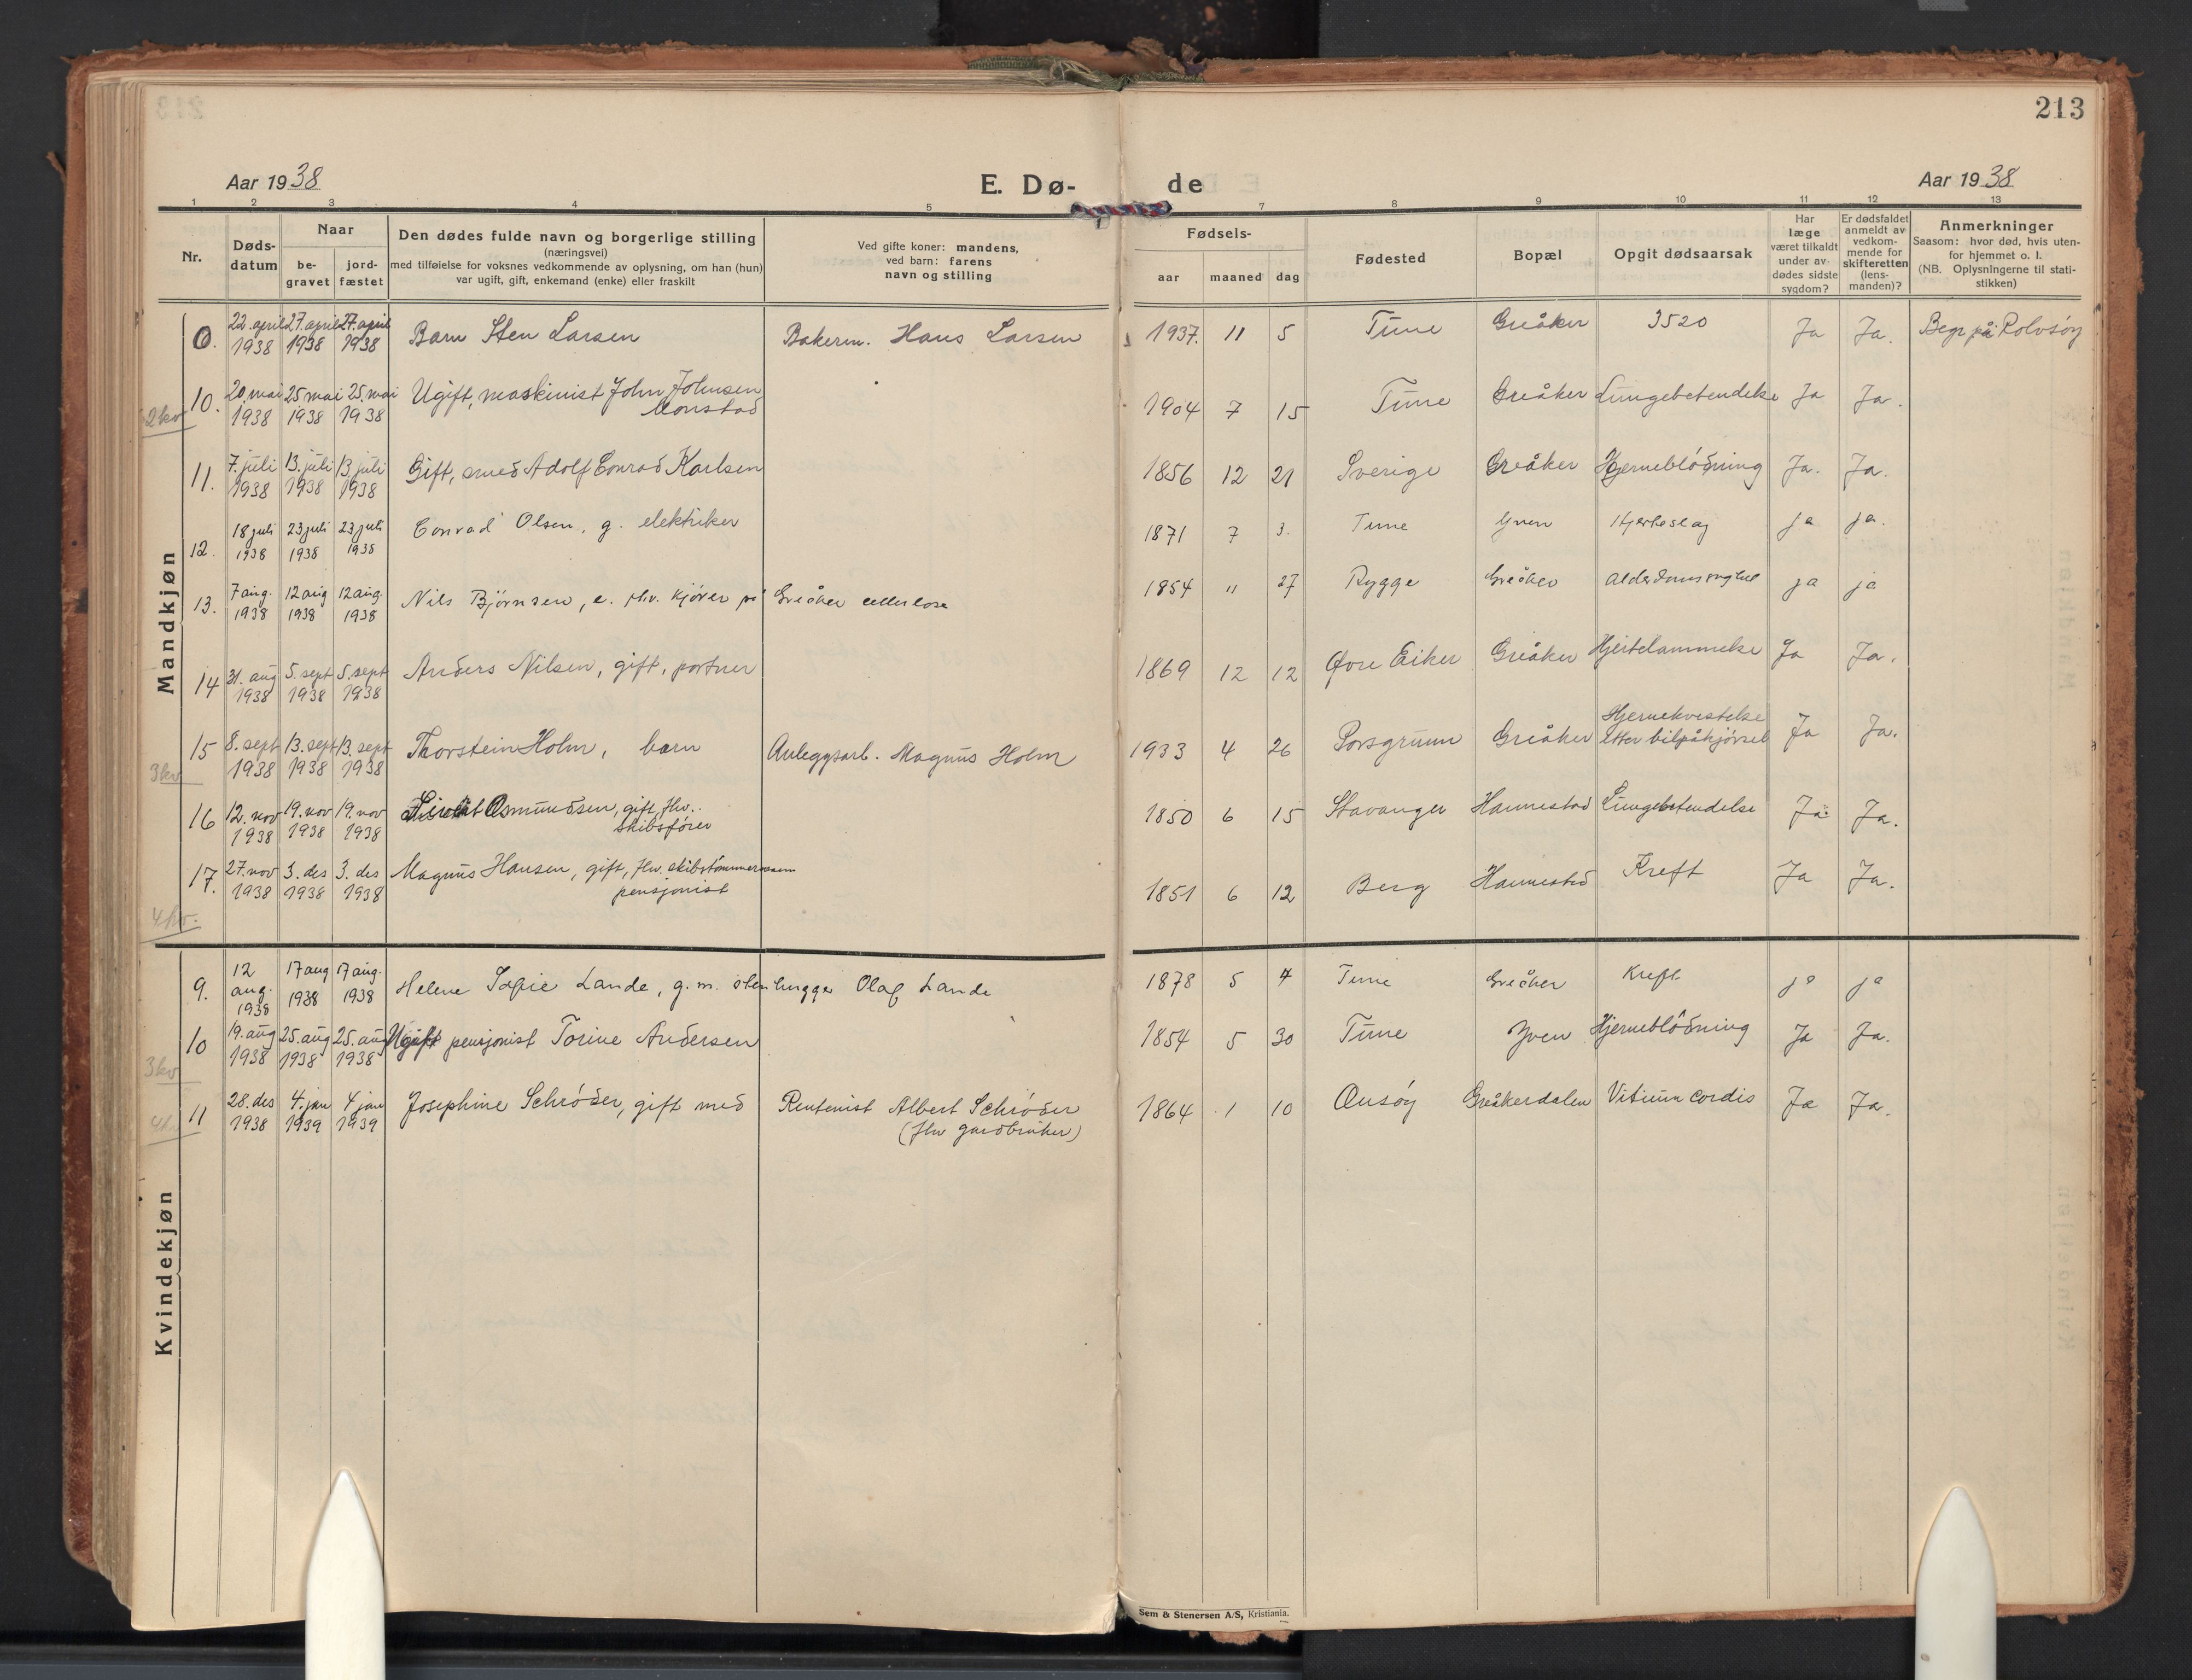 213
Aar 1938
E. Dø-
de
Aar 1938
1 2 3 4 5 7 8 9 10 11 12 13
Nr.
Døds-
datum
Naar
be-
gravet
jord-
fæstet
Den dødes fulde navn og borgerlige stilling
(næringsvei)
med tilføielse for voksnes vedkommende av oplysning, om han (hun)
var ugift, gift, enkemand (enke) eller fraskilt
Ved gifte koner: mandens,
ved barn: farens
navn og stilling
Fødsels-
aar maaned dag
Fødested
Bopæl
Opgit dødsaarsak
Har
læge
været tilkaldt
under av-
dødes sidste
sygdom?
Er dødsfaldet
anmeldt av
vedkom-
mende for
skifteretten
(lens-
manden)?
Anmerkninger
Saasom: hvor død, hvis uten-
for hjemmet o. l.
(NB. Oplysningerne til stati-
stikken)
Mandkjøn
22. april 27. april 27. april
1938 1938 1938
Barn Sten Larsen Bakerm. Hans Larsen 1937. 11 5 Tune Greåker 3520 Ja Ja. Begr på Rolvsøy
2 kv
10. 20. mai 25 mai 25. mai Ugift, maskinist John Johnsen
1938 1938 1938 Monstad
1904 7 15 Tune Greåker Lungebetendelse Ja Ja.
11. 7. juli 13. juli 13 juli Gift, smed Adolf Conrad Karlsen
1938 1938 1938
1856 12 21 Sverige Greåker Hjerneblödning Ja. Ja.
12. 18 juli 23 juli 23 juli Conrad Olsen, g. elektriker
1938 1938 1938
1871 7 3. Tune Yven Hjerteslag ja ja.
13. 7 aug. 12 aug 12 aug. Nils Bjørnsen, e. fhv. kjører på Greåker cellulose
1938 1938 1938
1854 " 27 Rygge Greåker ja ja
14 31. aug 5. sept 5. sept Anders Nilsen, gift, portner
1938 1938 1938
1869 12 12 Øvre Eiker Greåker Hjertelammelse Ja Ja.
15 8. sept 13. sept 13. sept Thorstein Holm, barn Anleggsarb. Magnus Holm
1938 1938 1938
1933 4 26 Porsgrunn Greåker Hjernekvestelse
etter bilpåkjørsel Ja Ja.
3 kv
16 12. nov 19. nov 19. nov Osmundsen, gift, fhv.
1938 1938 1938 skibsfører
1850 6 15 Stavanger Hannestad Lungebetendelse Ja Ja.
17. 27. nov 3. des 3. des Magnus Hansen, gift, fhv. skibstømmermann
1938 1938 1938 pensjonist
1851 6 12 Berg Hannestad Kreft Ja Ja.
4 kv.
Kvindekjøn
9. 12 17 aug 17 aug.
aug. 1938 1938
1938
Helene Sofie Lande, g. m. stenhugger Olaf Lande 1878 5 4 Tune Greåker Kreft ja ja
10 19. aug 25. aug 25. aug Ugift pensjonist Torine Andersen
1938 1938 1938
1854 5 30 Tune Yven Hjerneblödning Ja Ja.
3 kv
11 28. des 4. jan 4 jan Josephine Schrøder, gift med Rentenist Albert Schrøder
1938 1939 1939 (fhv gardbruker)
1864 1 10 Onsøy Greåkerdalen Vitium cordis Ja Ja.
Sem & Stenersen A/S, Kristiania.